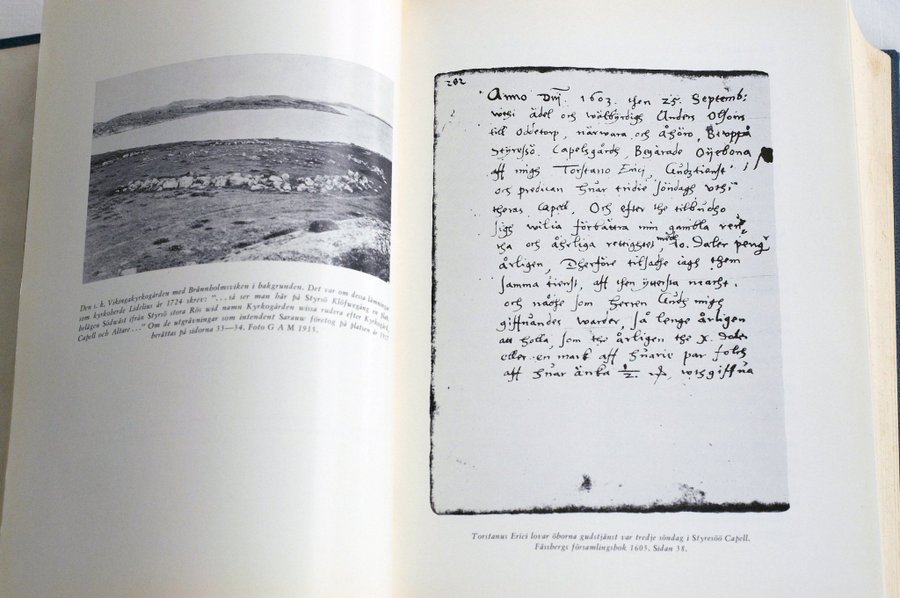 Den s. k. Vikingakyrkogården med Brännholmsviken i bakgrunden. Det var om dessa lämningar
som kyrkoherde Lidelius år 1724 skrev: "...så ser man här på Styrsö Klöfwegång en Platz
belägen Södwäst ifrån Styrsö stora Rös wid namn Kyrkogården wissa rudera efter Kyrkogård,
Capell och Altare..." Om de utgrävningar som intendent Sarauw företog på platsen år 1917
berättas på sidorna 33—34. Foto G A M 1915.
202
Anno Dni. 1603. then 25. Septemb:
ädel och wälbyrdigh Anders Olsons
till Oddetorp, närwara och åhöro, Beuppå
Styressö. Capelsgårdh, Begärade Öijebona
aff migh Torstano Erici, Gudztienst
och predican huar tridie söndagh uthi
theras Capell, Och efter the tilbudho
sigh wilia förbättra min gambla ren-
tha och åhrliga rettighet, med 10. daler peng
årligen, Dherföre tilsadhe iagh them
samma tienst, aff then yttersta macht.
och nådhe som Herren Gudh migh
giffuandes warder, så lenge årligen
att holla, som the årligen the X. daler
eller en mark aff huarie par folck
aff huar änka ½. uthgiffua
Torstanus Erici lovar öborna gudstjänst var tredje söndag i Styresöö Capell.
Fässbergs församlingsbok 1603. Sidan 38.